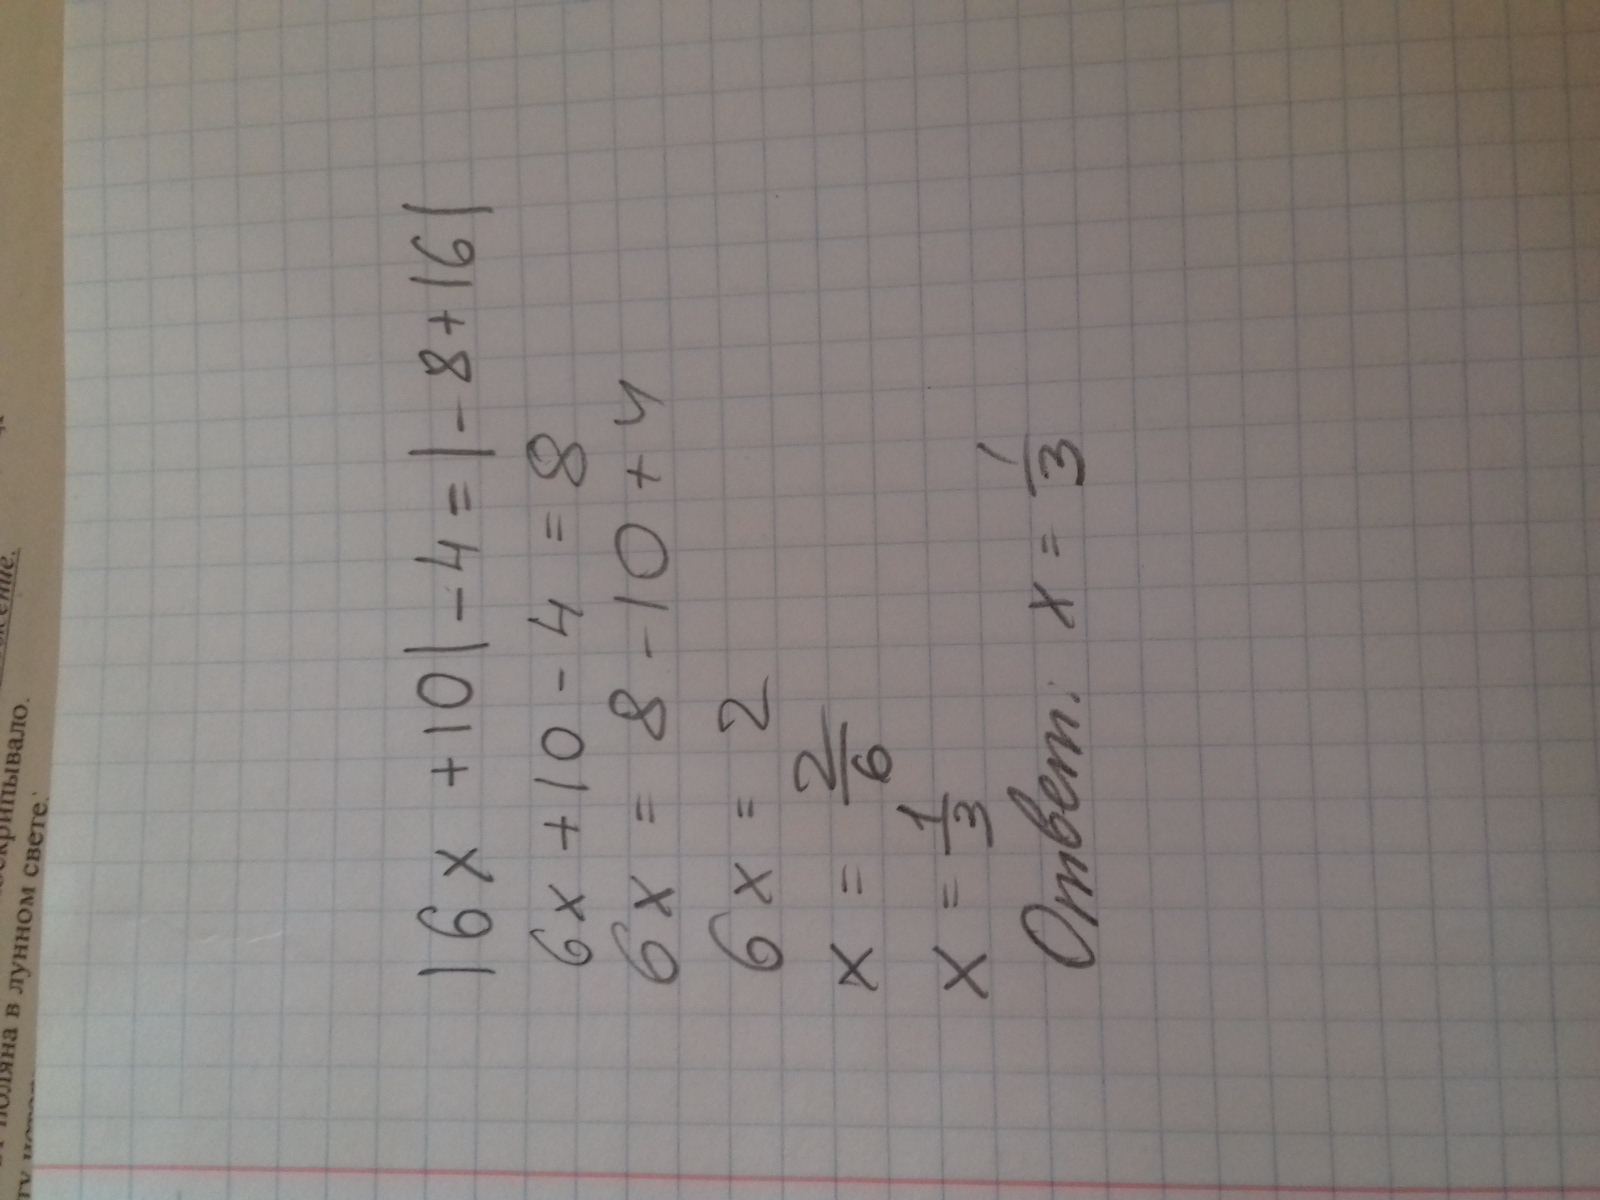 |6x + 10| - 4 = |- 8 + 16|
6x + 10 - 4 = 8
6x = 8 - 10 + 4
6x = 2
x = 2/6
x = 1/3
Ответ: x = 1/3
поляна в лунном свете.